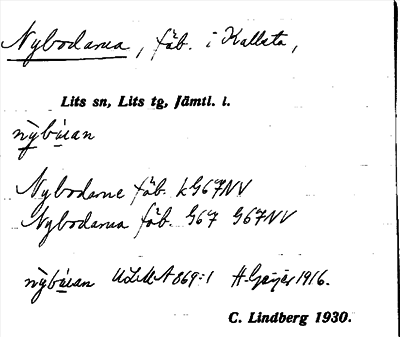 Nybodarna, fäb. i Kallsta,
Lits sn, Lits tg, Jämtl. l.
nỳbúan
Nybodarne fäb. kG67NV
Nybodarna fäb. G67 G67NV
nỳbúan ULMA 869:1 H. Geijer 1916.
C. Lindberg 1930.